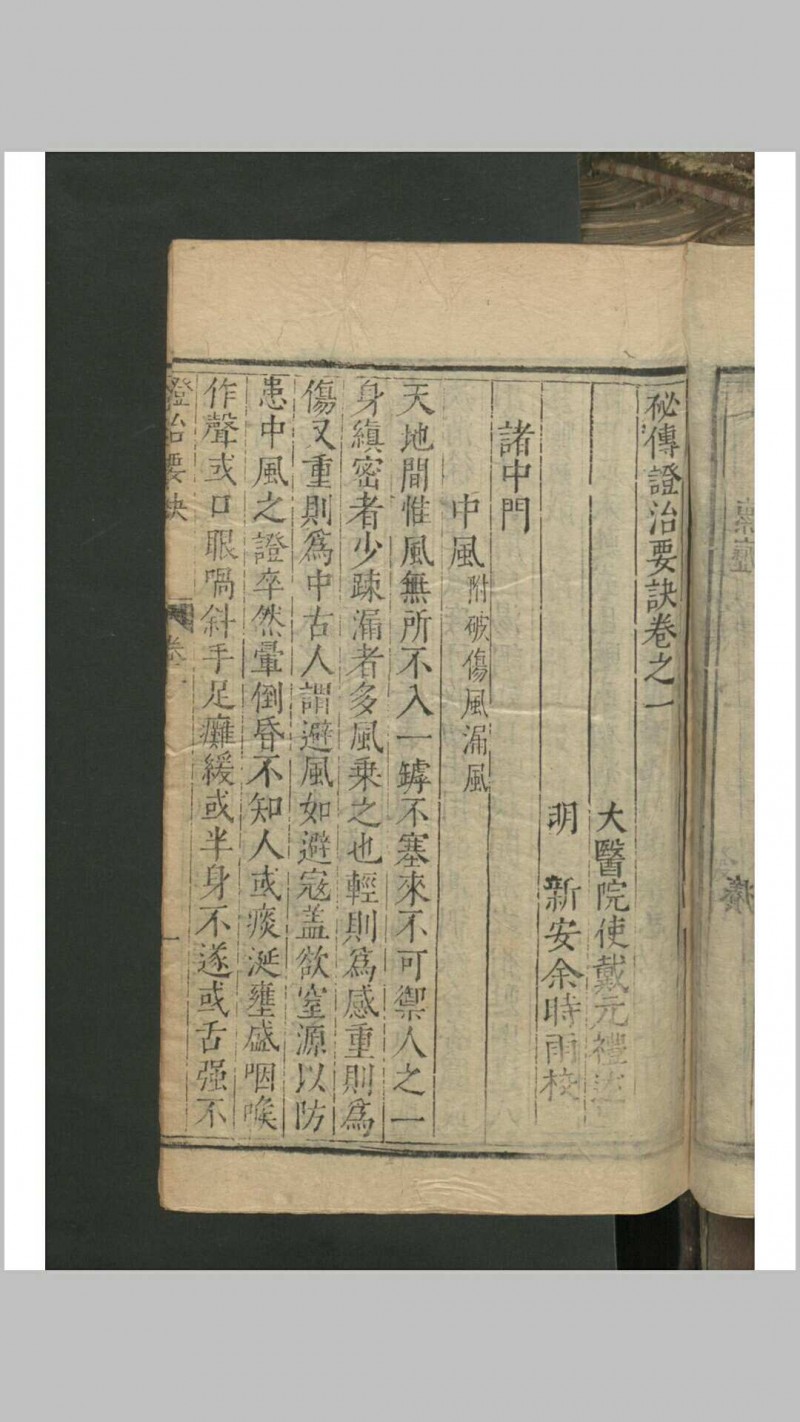 秘傳證治要訣卷之一
大醫院使戴元禮
明 新安余時雨校
諸中門
中風附破傷風漏風
天地間惟風無所不入一罅不塞來不可禦人之一
身縝密者少疎漏者多風乗之也輕則爲感重則爲
傷又重則爲中古人謂避風如避寇盖欲窒源以防
患中風之證卒然暈倒昏不知人或痰涎壅盛咽喉
作聲或口眼喎斜手足癱緩或半身不遂或舌强不
證治要訣 卷一 一